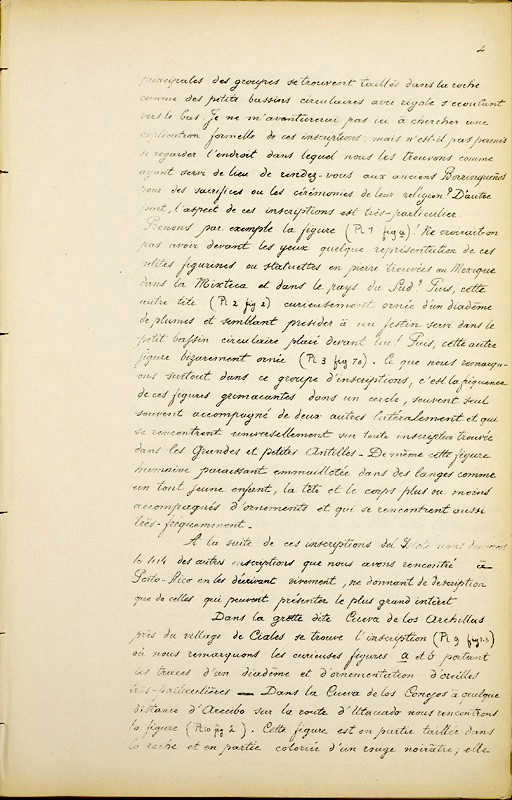 4
principales des groupes se trouvent taillés dans la roche
comme des petits bassins circulaires avec rigole s'écoulant
vers le bas. Je ne m'avanturerai pas ici à chercher une
explication formelle de ces inscriptions mais n'est-il pas permis
de regarder l'endroit dans lequel nous les trouvons comme
ayant servi de lieu de rendez-vous aux anciens Borrinqueños
pour des sacrifices ou les cérémonies de leur religion? D'autre
part, l'aspect de ces inscriptions est très-particulier.
Prenons par exemple la figure (Pl 1 fig a)! Ne croirait-on
pas avoir devant les yeux quelque représentation de ces
petites figurines ou statuettes en pierre trouvées au Mexique
dans la Mixteca et dans le pays du Sud? Puis, cette
autre tête (Pl 2 fig 2) curieusement ornée d'un diadême
de plumes et semblant presider à un festin servi dans le
petit bassin circulaire placé devant lui! Puis, cette autre
figure bizarement ornée (Pl 3 fig 70). Ce que nous remarqu-
ons surtout dans ce groupe d'inscriptions, c'est la fréquence
de ces figures grimacantes dans un cercle, souvent seul
souvent accompagné de deux autres latéralement et qui
se rencontrent universellement sur toute inscription trouvée
dans les Grandes et petites Antilles - De même cette figure
humaine paraissant emmaillotée dans des langes comme
un tout jeune enfant, la tête et le corps plus ou moins
accompagnés d'ornements et qui se rencontrent aussi
très-fréquemment.
A la suite de ces inscriptions del nous donnons
les des autres inscriptions que nous avons rencontré à
Porto-Rico en les décrivant vivement, ne donnant de description
que de celles qui peuvent présenter le plus grand intérêt
Dans la grotte dite Cueva de los Archillas
près du village de Ciales se trouve l'inscription (Pl 9 fig.)
où nous remarquons les curieuses figures a et b portant
les traces d'un diadême et d'ornementation d'oreilles
très-particulières — Dans la Cueva de los Conejos à quelque
distance d'Arecibo sur la route d'Utuado nous rencontrons
la figure (Pl 10 fig 2). Cette figure est en partie taillée dans
la roche et en partie coloriée d'un rouge noirâtre; elle